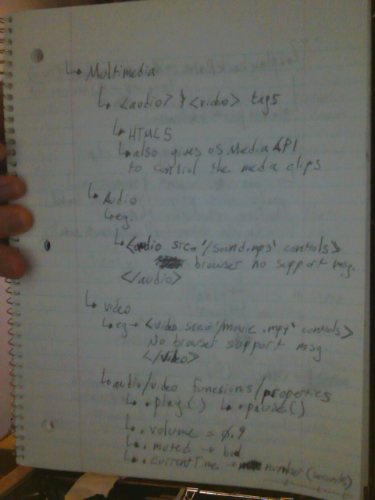 ↳ Multimedia
↳ <audio> & <video> tags
↳ HTML5
↳ also gives us Media API
to control the media clips
↳ Audio
↳ eg.
↳ <audio src="/sound.mp3" controls>
browser no support msg.
</audio>
↳ video
↳ eg → <video src="/movie.mp4" controls>
No browser support msg.
</video>
↳ audio/video functions/properties
↳ .play() ↳ .pause()
↳ .volume = 0.9
↳ .muted → bool
↳ .currentTime → number (seconds)